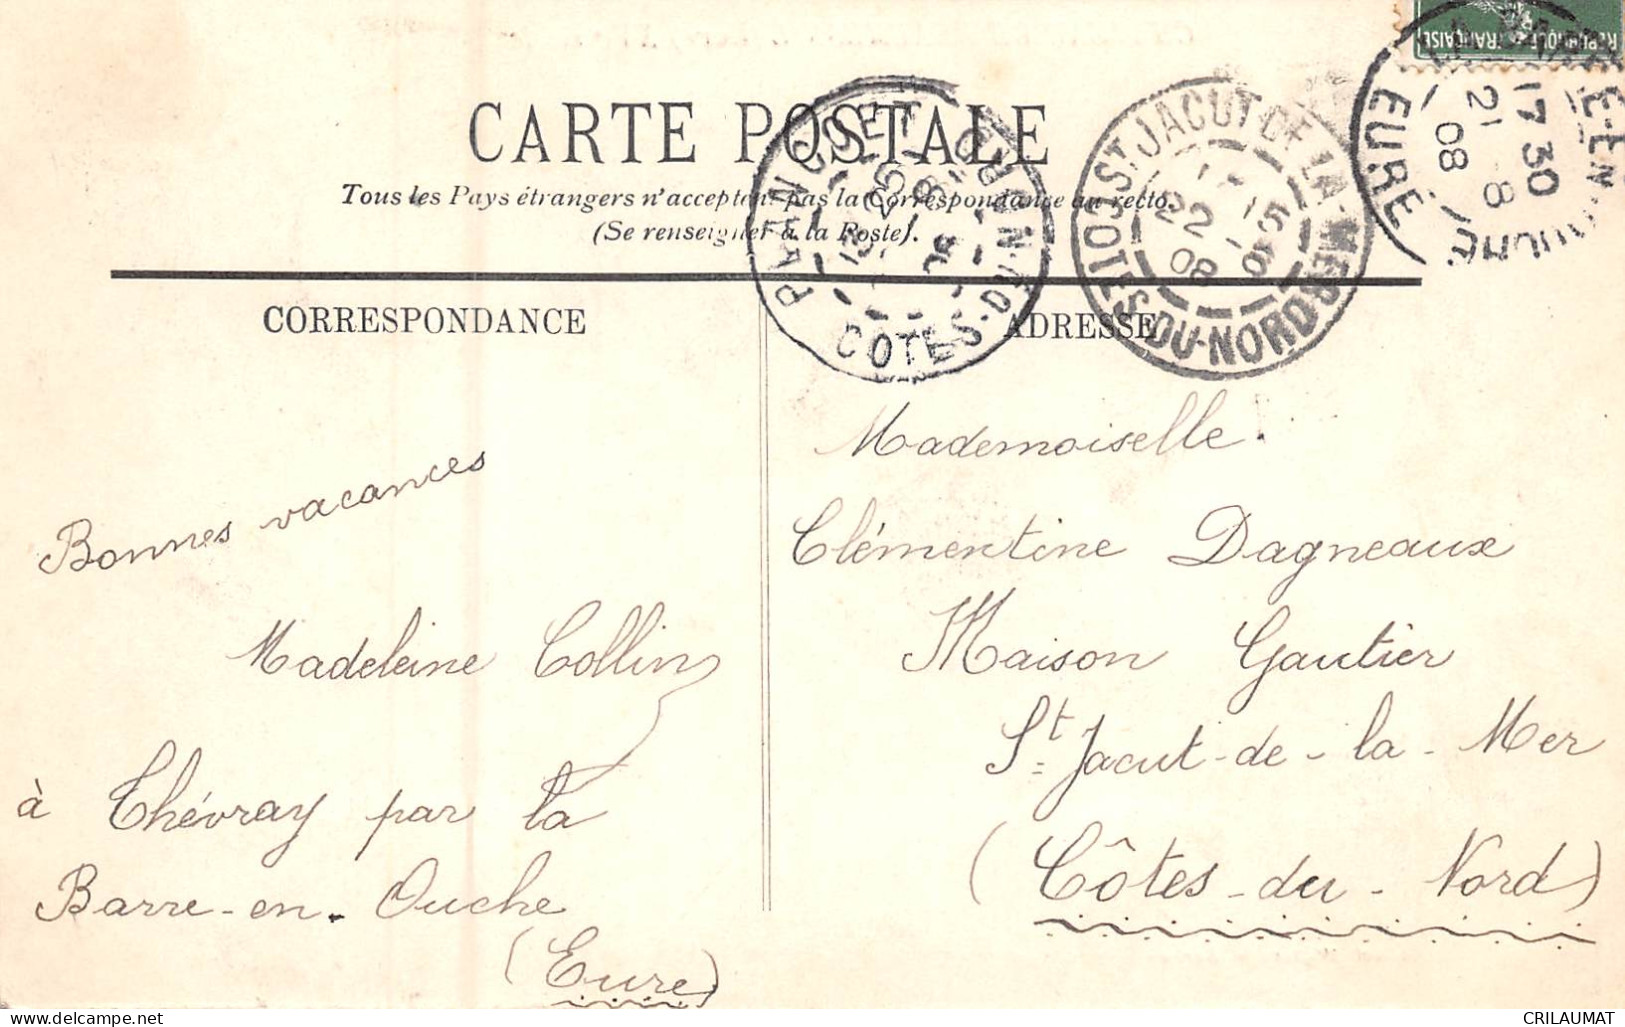 RÉPUBLIQUE FRANÇAISE
CARTE POSTALE
Tous les Pays étrangers n'acceptent pas la Correspondance au recto.
(Se renseigner à la Poste).
PLANCOET
COTES-DU-NORD
ST JACUT-DE-LA-MER
COTES-DU-NORD
15
22 - 8
08
EURE
17 30
21 8
08
CORRESPONDANCE
ADRESSE
Bonnes vacances
Madeleine Collin
à Thévray par la
Barre-en-Ouche
(Eure)
Mademoiselle
Clémentine Dagneaux
Maison Gautier
St Jacut-de-la-Mer
(Côtes-du-Nord)
www.delcampe.net
CRILAUMAT